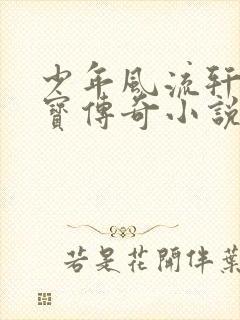 少年風流軒
寶傳奇小說
若是花開伴葉